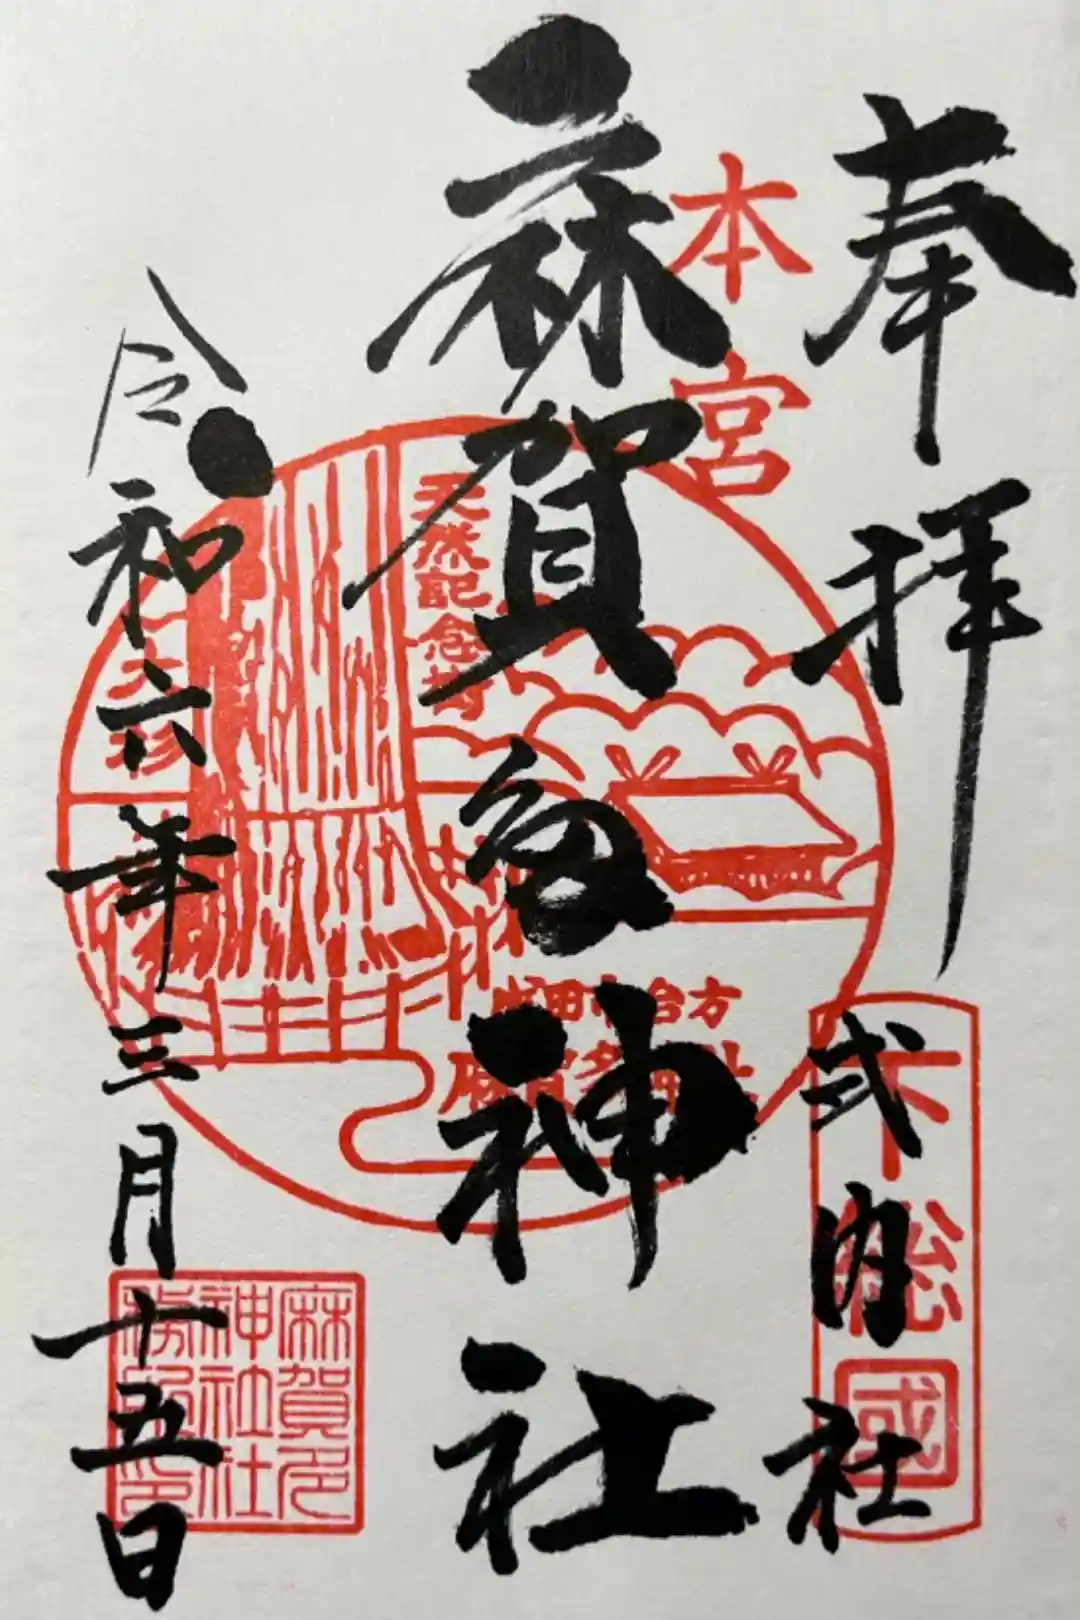 奉拝
式内社
本宮
下総國
麻賀多神社
天然記念樹
大杉
台方
麻賀多神社
令和六年三月十五日
麻賀多
神社社
務所印